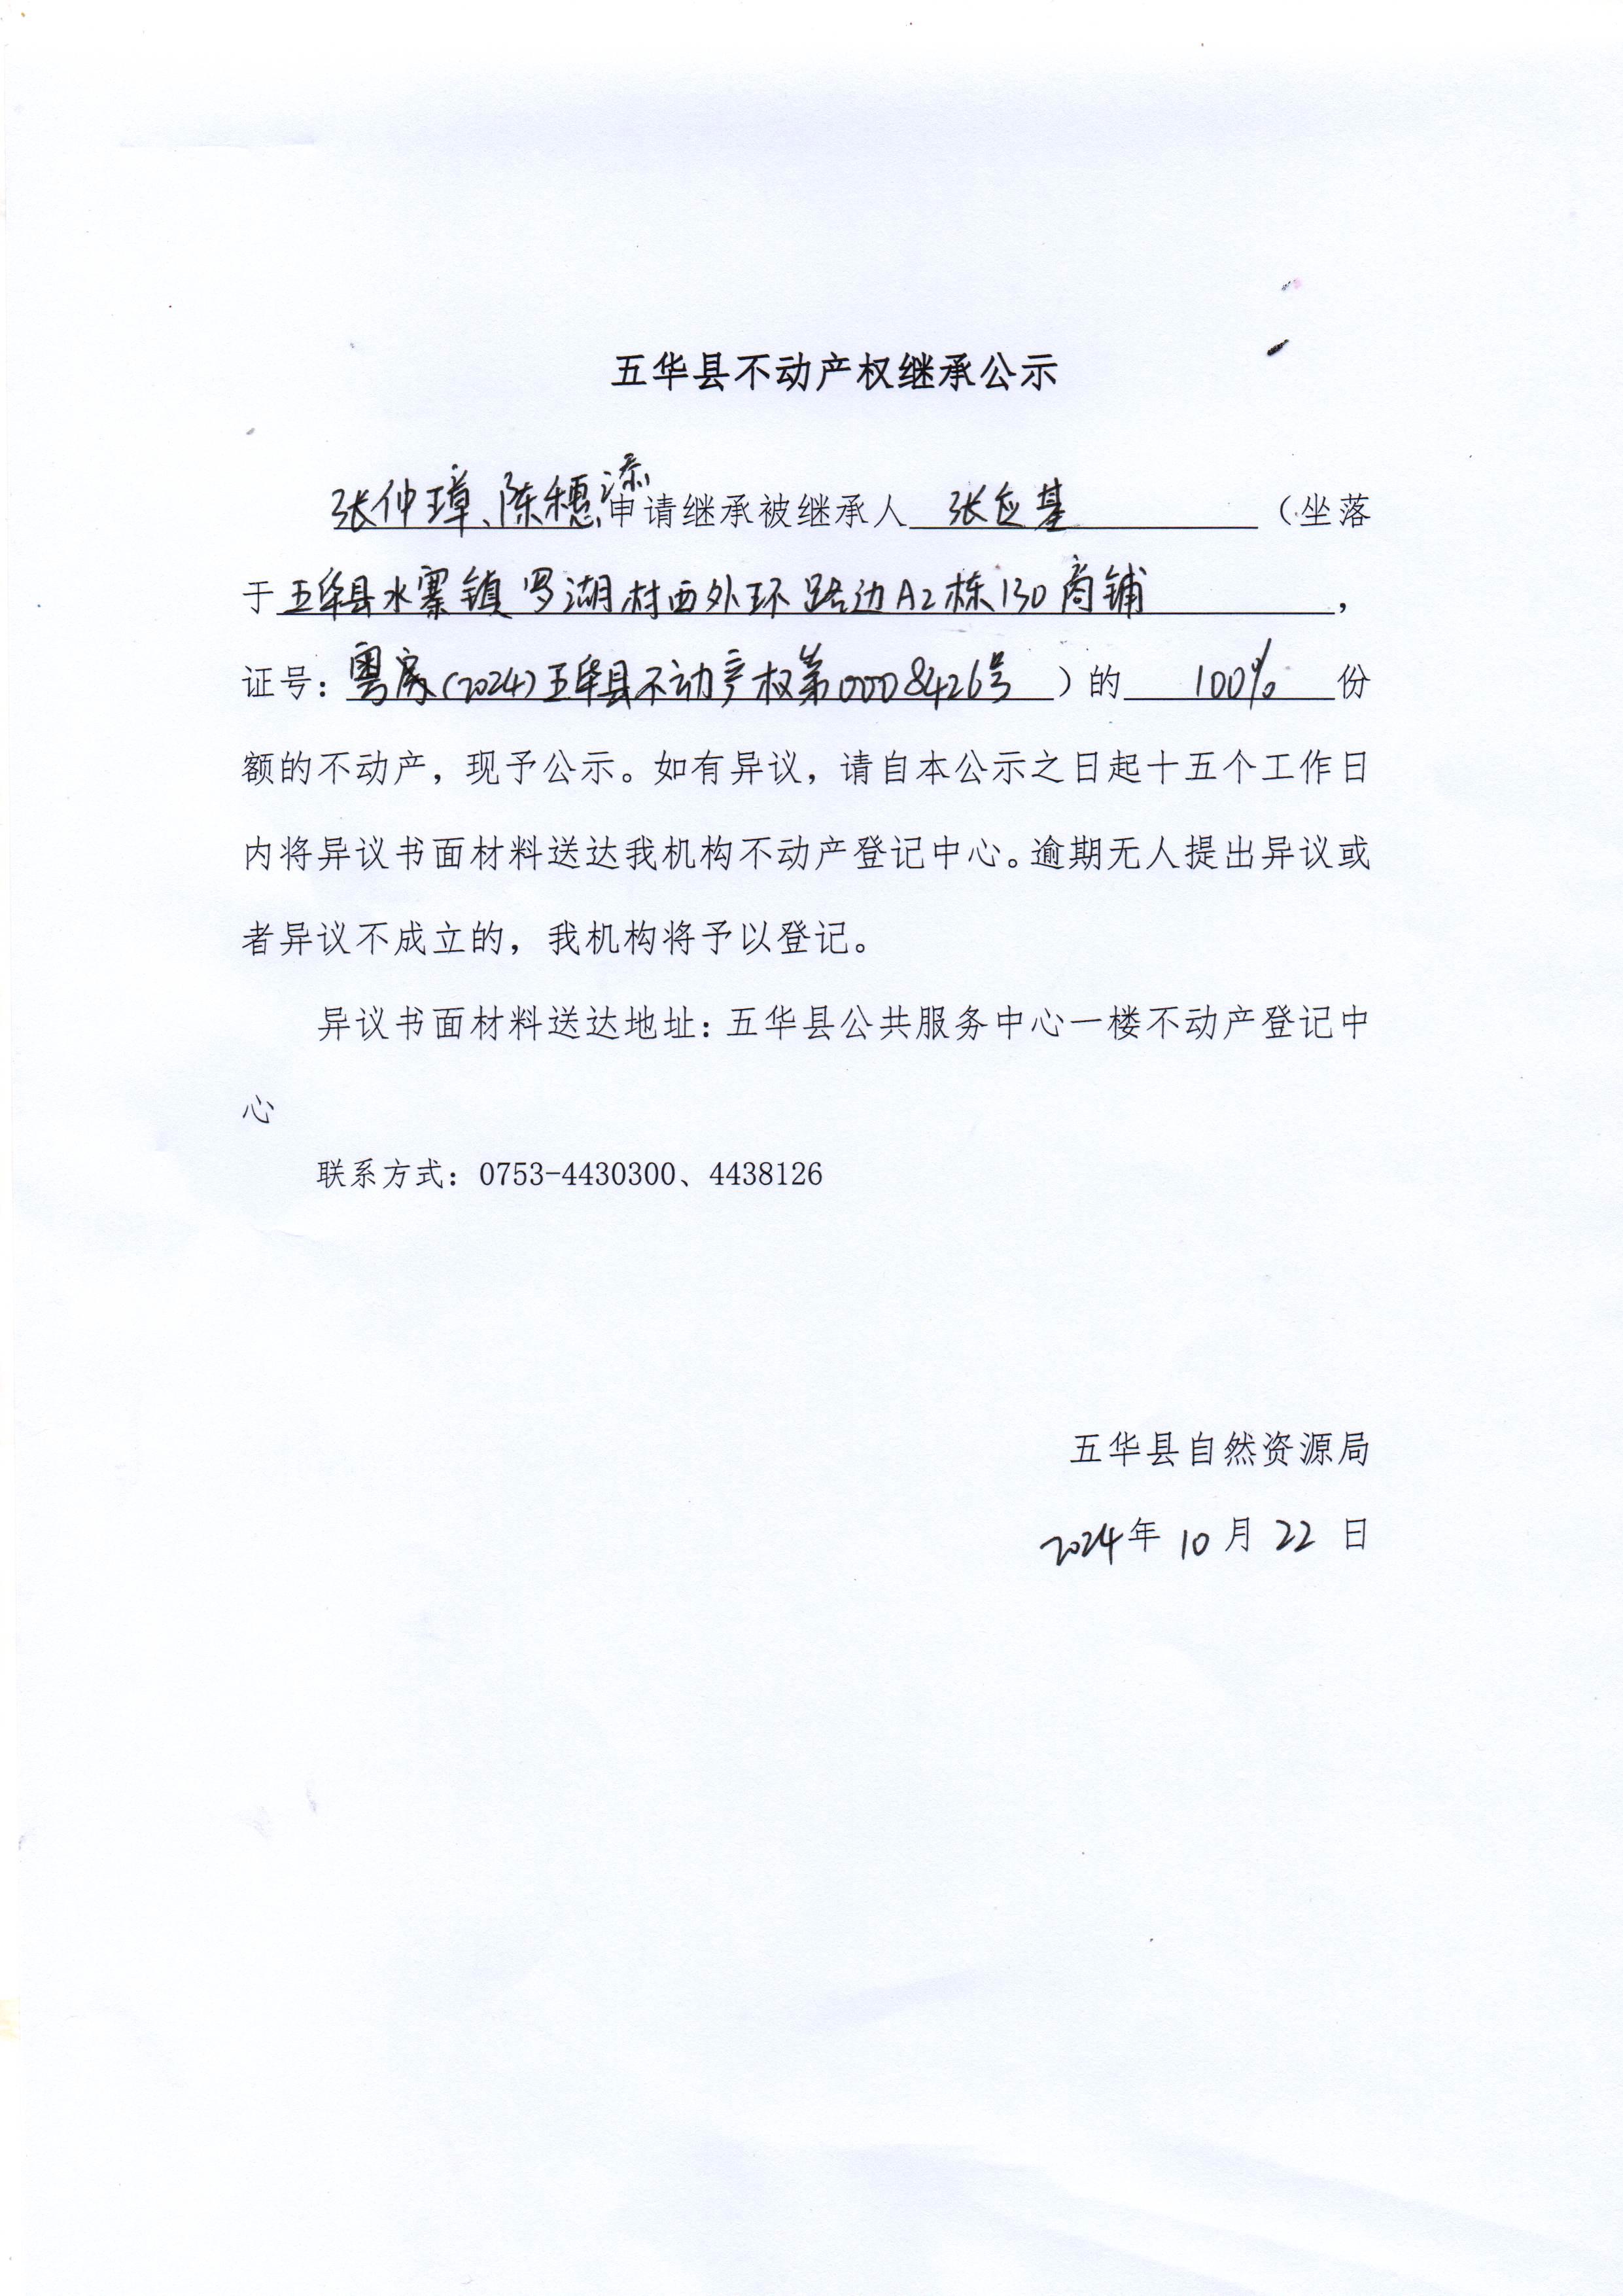 五华县不动产权继承公示
张仲璋、陈穗添申请继承被继承人 张应基 （坐落
于五华县水寨镇罗湖村西外环路边A2栋130商铺，
证号：粤房(2024)五华县不动产权第0008426号）的 100% 份
额的不动产，现予公示。如有异议，请自本公示之日起十五个工作日
内将异议书面材料送达我机构不动产登记中心。逾期无人提出异议或
者异议不成立的，我机构将予以登记。
异议书面材料送达地址：五华县公共服务中心一楼不动产登记中
心
联系方式：0753-4430300、4438126
五华县自然资源局
2024年 10 月 22 日